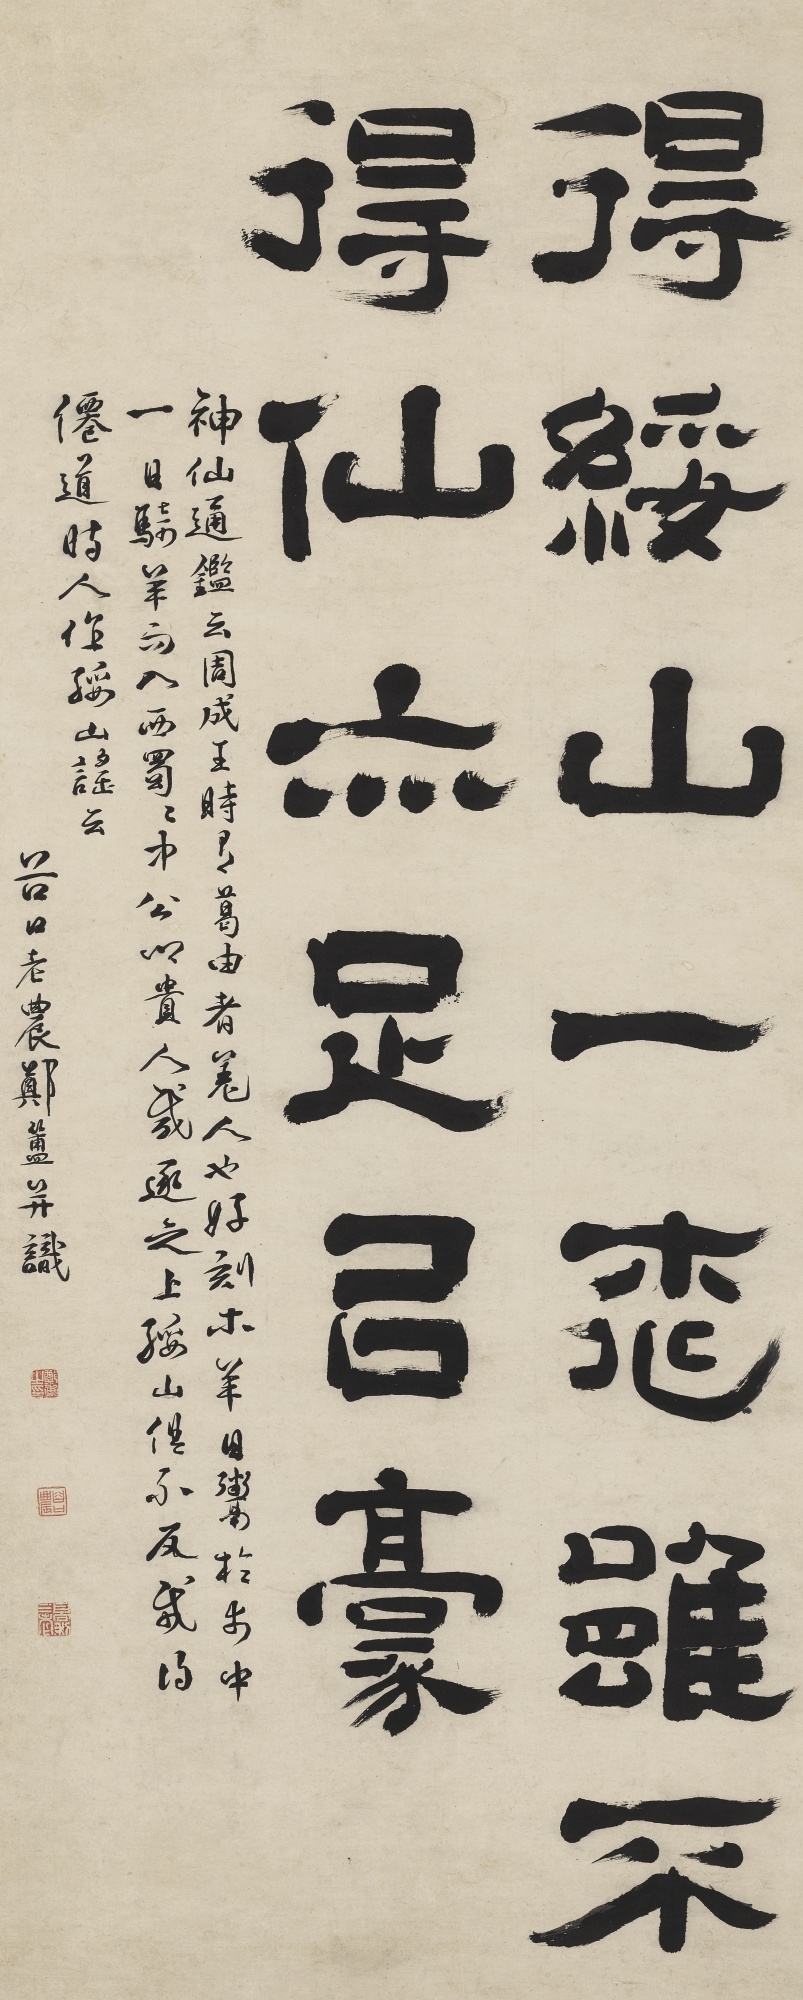 得綏山一桃雖不
得仙亦足㠯豪
神仙通鑑云周成王時有葛由者羌人也好刻木羊自鬻於市中
一日騎羊而入西蜀〻中公卿貴人或逐之上綏山俱不反或得
僊道時人作綏山謠云
谷口老農鄭簠并識